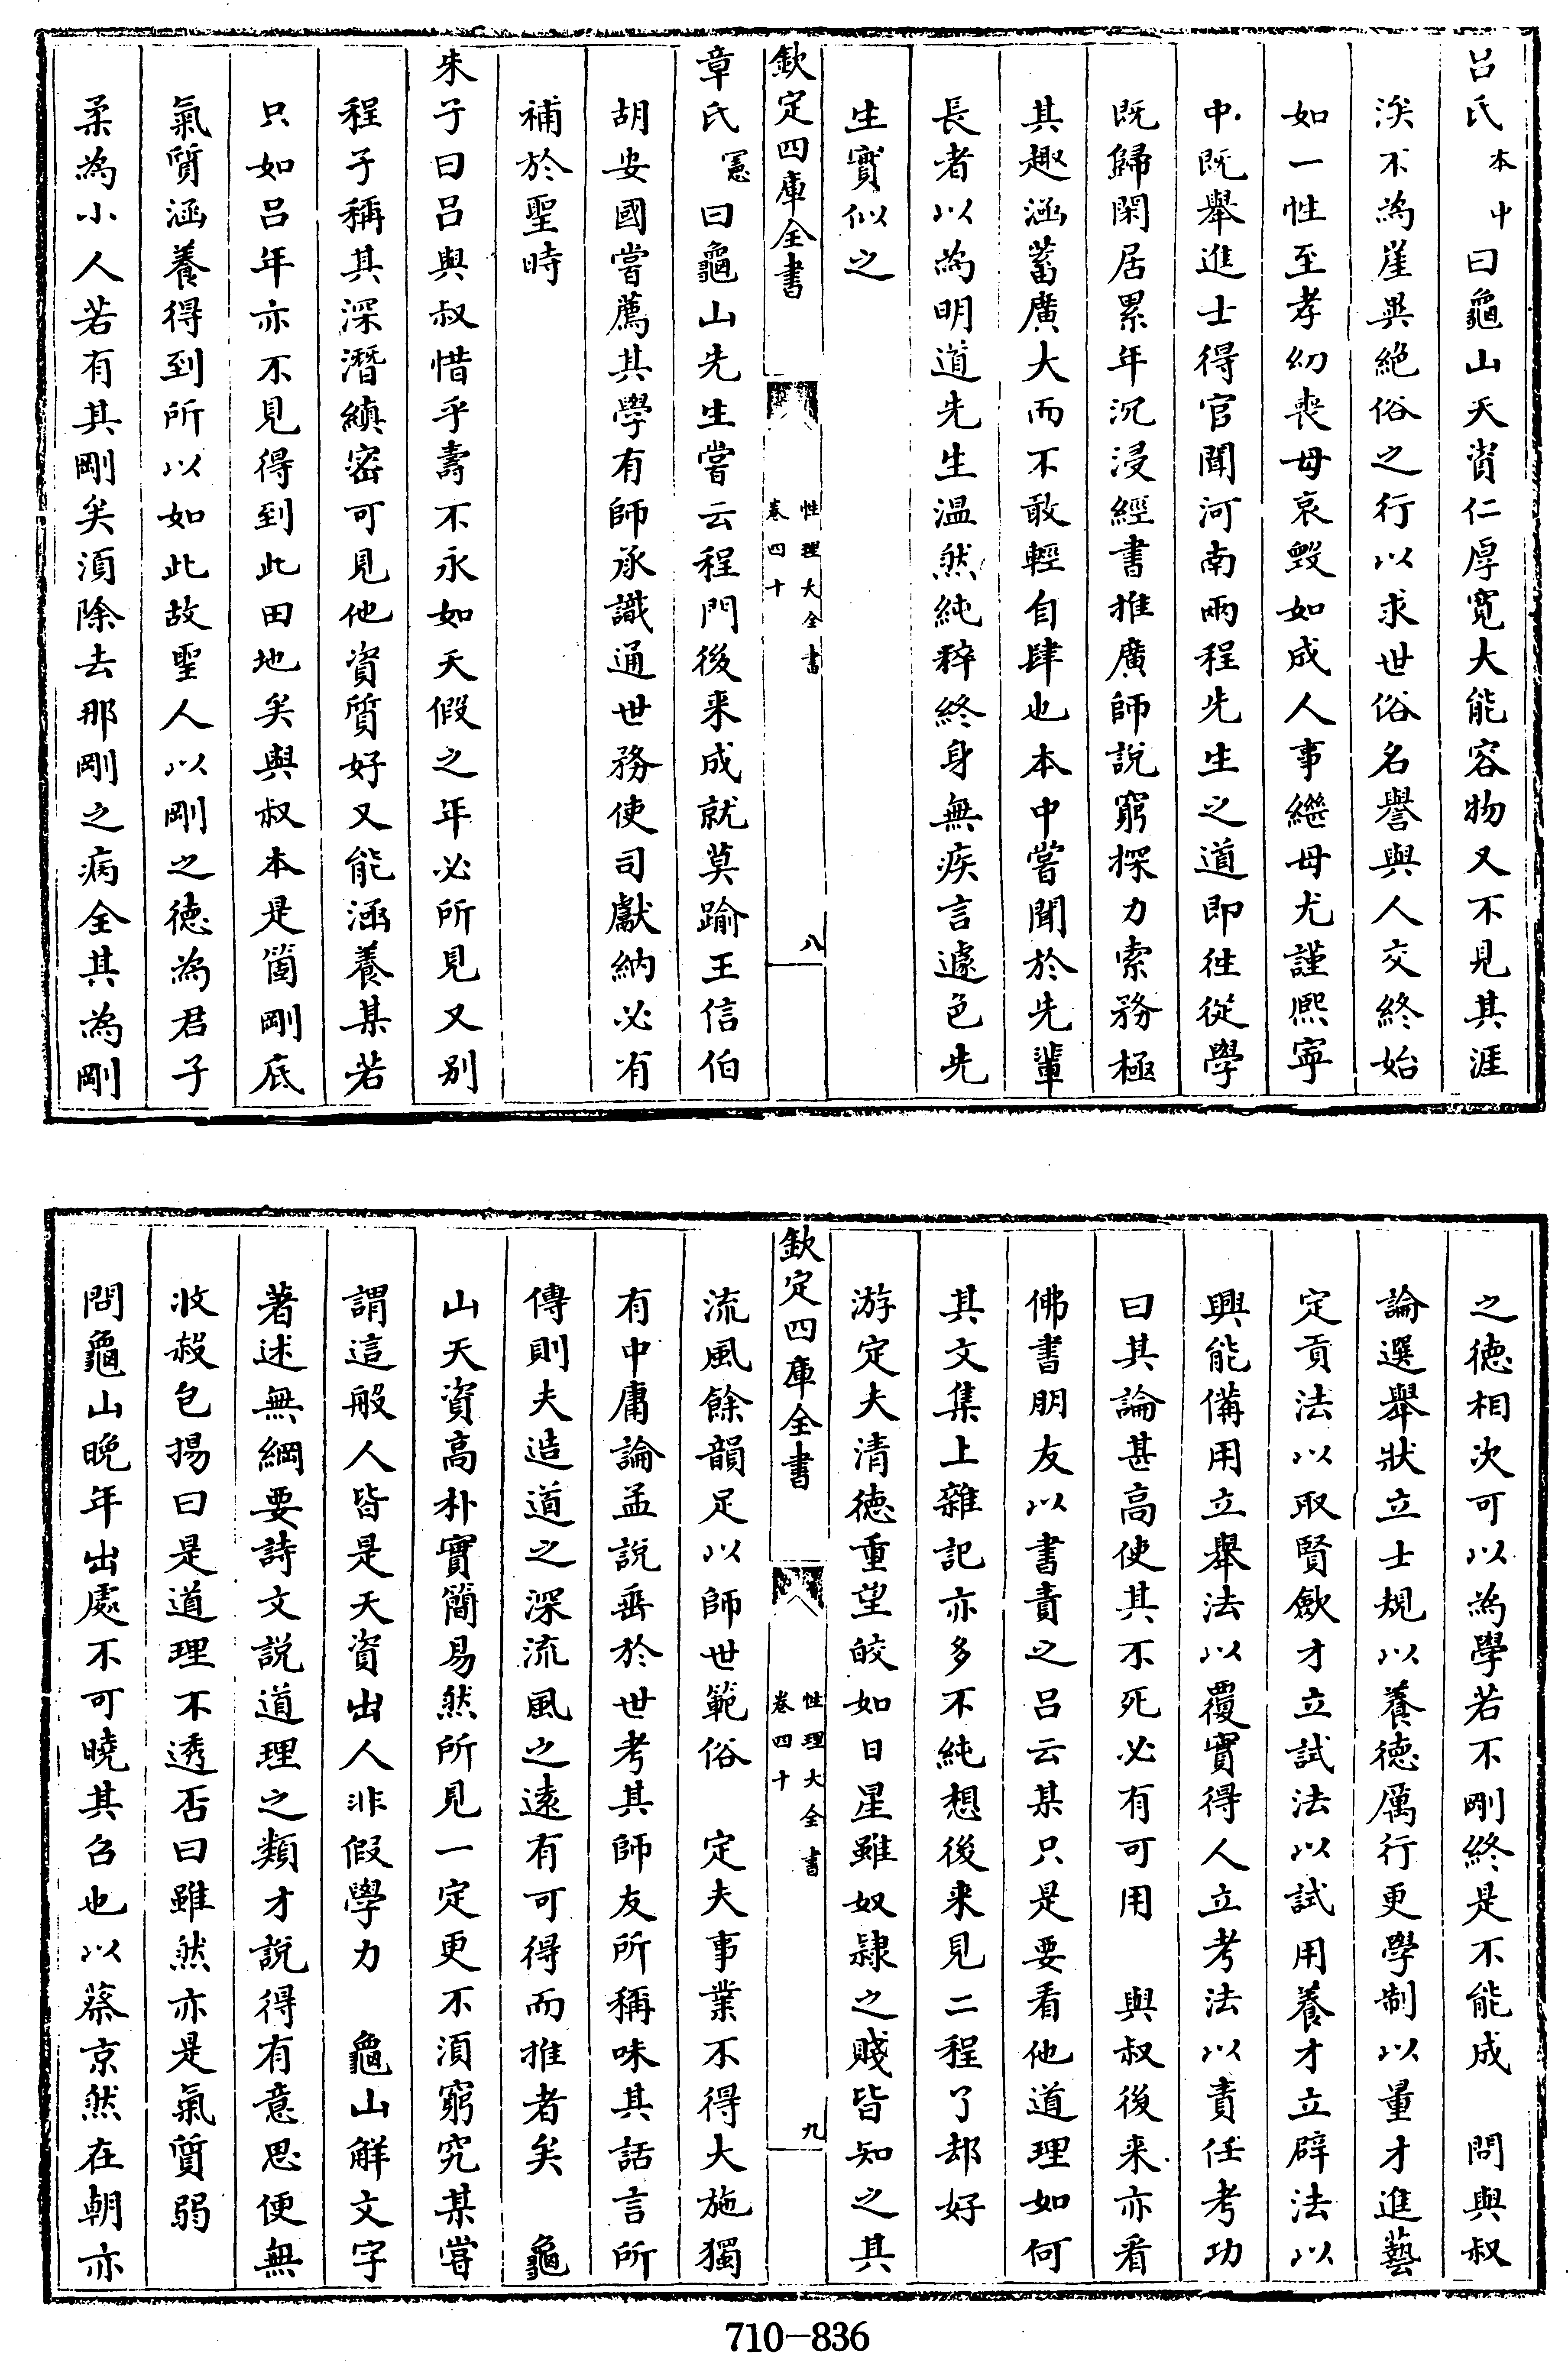 呂氏本中曰龜山天資仁厚寛大能容物又不見其涯
涘不為崖異絶俗之行以求世俗名譽與人交終始
如一性至孝幼喪母哀毀如成人事繼母尤謹熙寧
中既舉進士得官聞河南兩程先生之道即徃從學
既歸閑居累年沉浸經書推廣師説窮探力索務極
其趣涵蓄廣大而不敢輕自肆也本中嘗聞於先輩
長者以為明道先生温然純粹終身無疾言遽色先
生實似之
欽定四庫全書
性理大全書
卷四十
八
章氏憲曰龜山先生嘗云程門後来成就莫踰王信伯
胡安國嘗薦其學有師承識通世務使司獻納必有
補於聖時
朱子曰呂與叔惜乎壽不永如天假之年必所見又别
程子稱其深潛縝密可見他資質好又能涵養某若
只如呂年亦不見得到此田地矣與叔本是箇剛底
氣質涵養得到所以如此故聖人以剛之徳為君子
柔為小人若有其剛矣須除去那剛之病全其為剛
之徳相次可以為學若不剛終是不能成　問與叔
論選舉狀立士規以養徳厲行更學制以量才進藝
定貢法以取賢歛才立試法以試用養才立辟法以
興能備用立舉法以覆實得人立考法以責任考功
曰其論甚高使其不死必有可用　與叔後来亦看
佛書朋友以書責之呂云某只是要看他道理如何
其文集上雜記亦多不純想後来見二程了却好
游定夫清徳重望皎如日星雖奴隷之賤皆知之其
欽定四庫全書
性理大全書
卷四十
九
流風餘韻足以師世範俗　定夫事業不得大施獨
有中庸論孟説垂於世考其師友所稱味其話言所
傳則夫造道之深流風之遠有可得而推者矣　龜
山天資高朴實簡易然所見一定更不須窮究某嘗
謂這般人皆是天資出人非假學力　龜山解文字
著述無綱要詩文説道理之類才説得有意思便無
收殺包揚曰是道理不透否曰雖然亦是氣質弱
問龜山晚年出處不可曉其召也以蔡京然在朝亦
710-836